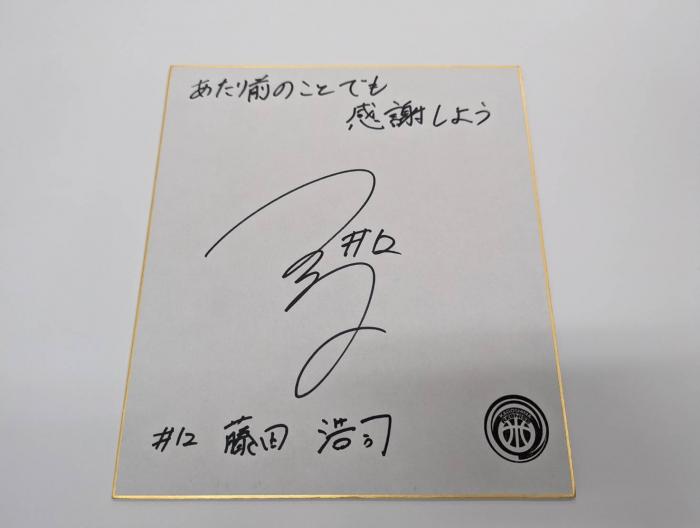 あたり前のことでも
感謝しよう
#12
#12 藤田 浩司